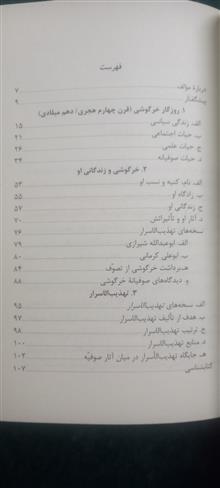 فهرست
دربارهٔ مؤلف ۷
پیشگفتار ۹
۱. روزگار خرگوشی (قرن چهارم هجری/ دهم میلادی)
الف. زندگی سیاسی ۱۵
ب. حیات اجتماعی ۲۱
ج. حیات علمی ۲۶
د. حیات صوفیانه ۳۴
۲. خرگوشی و زندگانی او
الف. نام، کنیه و نسب او ۵۳
ب. زادگاه او ۵۵
ج. زندگانی او ۵۷
د. آثار او و تأثیراتش ۷۰
نسخه‌های تهذیب‌الاسرار ۷۶
الف. ابوعبدالله شیرازی ۷۹
ب. ابوعلی کرمانی ۸۰
هـ. برداشت خرگوشی از تصوّف ۸۴
و. دیدگاه‌های صوفیانهٔ خرگوشی ۸۸
۳. تهذیب‌الاسرار
الف. نسخه‌های تهذیب‌الاسرار ۹۵
ب. هدف از تألیف تهذیب‌الاسرار ۹۷
ج. ترتیب تهذیب‌الاسرار ۹۸
د. منابع تهذیب‌الاسرار ۱۰۰
هـ. جایگاه تهذیب‌الأسرار در میان آثار صوفیّه ۱۰۲
کتابشناسی ۱۰۷